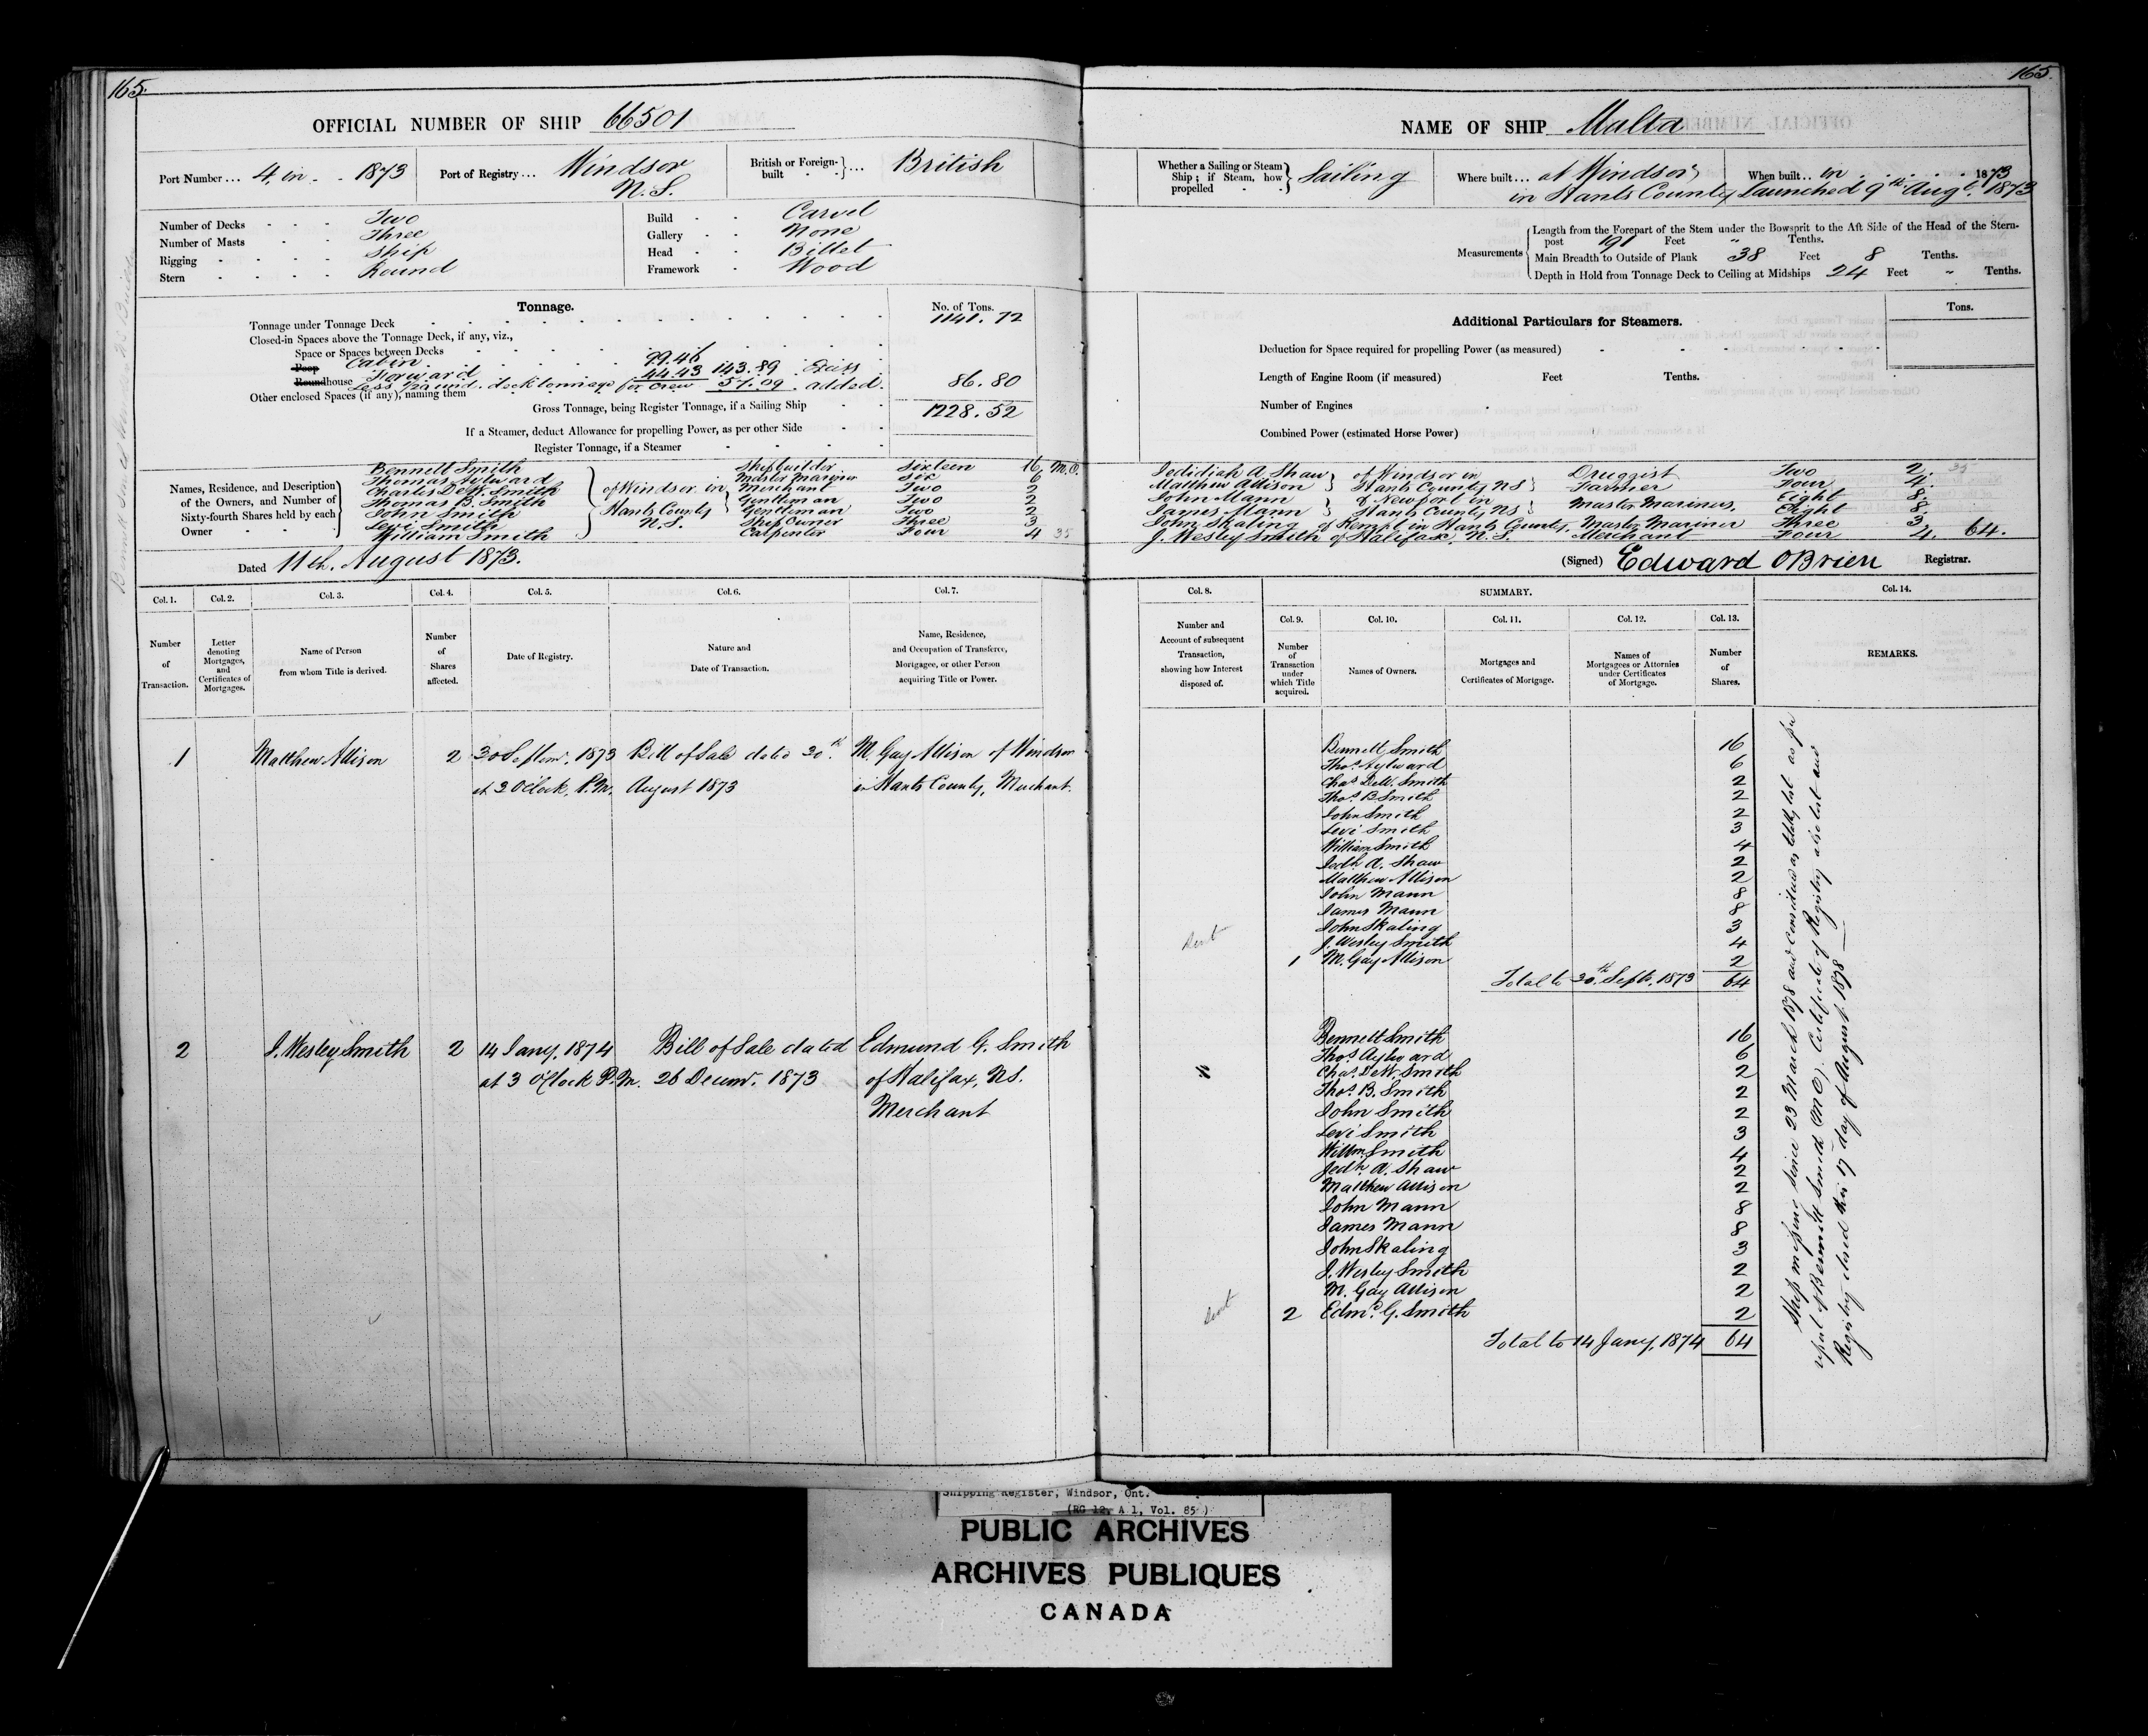 165
OFFICIAL NUMBER OF SHIP 66501
Port Number ... 4 in 1873
Port of Registry ... Windsor N.S.
British or Foreign-built ... British
Number of Decks Two
Number of Masts Three
Rigging Ship
Stern Round
Build Carvel
Gallery None
Head Billet
Framework Wood
Tonnage.
No. of Tons.
Tonnage under Tonnage Deck 1141.72
Closed-in Spaces above the Tonnage Deck, if any, viz.,
Space or Spaces between Decks
Poop Cabin 99.46
Roundhouse Forward 44.43 143.89
Other enclosed Spaces (if any), naming them deck tonnage for crew 57.09 added. 86.80
Gross Tonnage, being Register Tonnage, if a Sailing Ship 1228.52
If a Steamer, deduct Allowance for propelling Power, as per other Side
Register Tonnage, if a Steamer
Names, Residence, and Description of the Owners, and Number of Sixty-fourth Shares held by each Owner
Bennett Smith Shipbuilder Sixteen 16 M.O.
Thomas Aylward Master Mariner Six 6
Charles DeW. Smith of Windsor in Merchant Two 2
Thomas B. Smith Hants County Gentleman Two 2
John Smith N.S. Gentleman Two 2
Levi Smith Ship Owner Three 3
William Smith Carpenter Four 4 35
Dated 11th. August 1873.
Col. 1. Number of Transaction.
Col. 2. Letter denoting Mortgages, and Certificates of Mortgages.
Col. 3. Name of Person from whom Title is derived.
Col. 4. Number of Shares affected.
Col. 5. Date of Registry.
Col. 6. Nature and Date of Transaction.
Col. 7. Name, Residence, and Occupation of Transferee, Mortgagee, or other Person acquiring Title or Power.
1 Matthew Allison 2 30 Septem. 1873 Bill of Sale dated 30th M. Gay Allison of Windsor
at 3 O'Clock, P.M. August 1873 in Hants County, Merchant.
2 J. Wesley Smith 2 14 Jany. 1874 Bill of Sale dated Edmund G. Smith
at 3 O'Clock P.M. 26 Decem. 1873 of Halifax, N.S.
Merchant
165
NAME OF SHIP Malta
Whether a Sailing or Steam Ship; if Steam, how propelled Sailing
Where built ... at Windsor in Hants County
When built .. in 1873
Launched 9th Augt. 1873
Measurements
Length from the Forepart of the Stem under the Bowsprit to the Aft Side of the Head of the Stern-post 191 Feet " Tenths.
Main Breadth to Outside of Plank 38 Feet 8 Tenths.
Depth in Hold from Tonnage Deck to Ceiling at Midships 24 Feet " Tenths.
Additional Particulars for Steamers.
Tons.
Deduction for Space required for propelling Power (as measured)
Length of Engine Room (if measured) Feet Tenths.
Number of Engines
Combined Power (estimated Horse Power)
Jedidiah A. Shaw of Windsor in Druggist Two 2. 35
Matthew Allison Hants County NS Farmer Four 4.
John Mann of Newport in Master Mariners, Eight 8.
James Mann Hants County NS Eight 8.
John Skaling of Kempt in Hants County, Master Mariner Three 3.
J. Wesley Smith of Halifax, N.S. Merchant Four 4. 64.
(Signed) Edward OBrien Registrar.
Col. 8. Number and Account of subsequent Transaction, showing how Interest disposed of.
SUMMARY.
Col. 9. Number of Transaction under which Title acquired.
Col. 10. Names of Owners.
Col. 11. Mortgages and Certificates of Mortgage.
Col. 12. Names of Mortgagees or Attornies under Certificates of Mortgage.
Col. 13. Number of Shares.
Col. 14. REMARKS.
Bennett Smith 16
Thos. Aylward 6
Chas DeW. Smith 2
Thos. B. Smith 2
John Smith 2
Levi Smith 3
William Smith 4
Jedh A. Shaw 2
Matthew Allison 2
John Mann 8
James Mann 8
John Skaling 3
J. Wesley Smith 4
Sent
1 M. Gay Allison 2
Total to 30th Septr. 1873 64
Bennett Smith 16
Thos. Aylward 6
Chas. DeW. Smith 2
Thos. B. Smith 2
John Smith 2
Levi Smith 3
Willm. Smith 4
Jedh. A. Shaw 2
Matthew Allison 2
John Mann 8
James Mann 8
John Skaling 3
J. Wesley Smith 2
M. Gay Allison 2
Sent
2 Edmd. G. Smith 2
Total to 14 Jany, 1874 64
Ship missing since 23 March 1878 and considered as totally lost as per
report of Bennett Smith (M.O.) Certificate of Registry also lost and
Registry closed this 17 day of August 1878
Shipping Register, Windsor, Ont.
(RG 12, A 1, Vol. 85)
PUBLIC ARCHIVES
ARCHIVES PUBLIQUES
CANADA